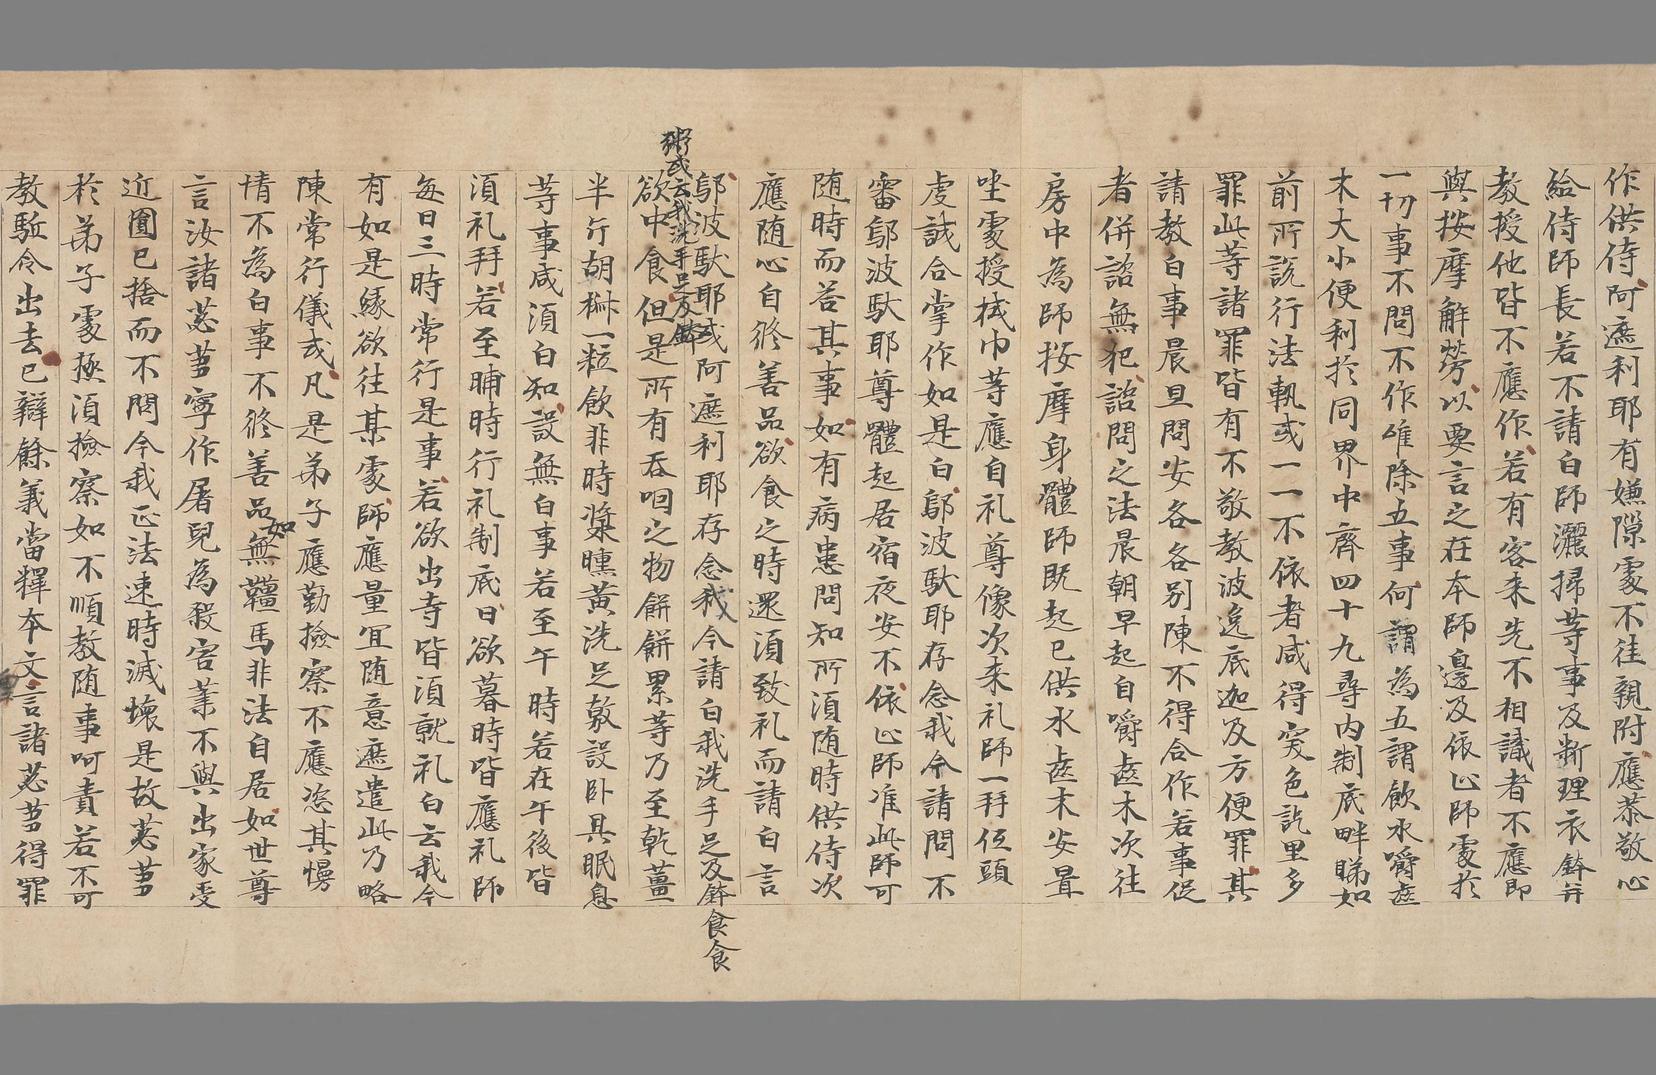 作供侍阿遮利耶有嫌隙處不往親附應恭敬心
給侍師長若不請白師灑掃等事及断理衣鉢并
教授他皆不應作若有客来先不相識者不應即
與按摩解勞以要言之在本師邊及依止師處於
一切事不問不作唯除五事何謂為五謂飲水嚼齒
木大小便利於同界中齊四十九尋内制底畔睇如
前所説行法軌或一一不依者咸得突色訖里多
罪此等諸罪皆有不敬教波逸底迦及方便罪其
請教白事晨旦問安各各別陳不得合作若事促
者併諮無犯諮問之法晨朝早起自嚼齒木次往
房中為師按摩身體師既起已供水齒木安置
坐處授拭巾等應自礼尊像次来礼師一拜伍頭
虔誠合掌作如是白鄔波馱耶存念我今請問不
審鄔波馱耶尊體起居宿夜安不依止師准此師可
随時而荅其事如有病患問知所須随時供侍次
應随心自修善品欲食之時還須致礼而請白言
鄔波馱耶或阿遮利耶存念我今請白我洗手足及鉢食食
粥或云我洗手足及鉢
欲中食但是所有吞咽之物餅餅累等乃至乾薑
半片胡椒一粒飲非時漿曛黄洗足敷設卧具眠息
等事咸須白知設無白事若至午時若在午後皆
須礼拜若至晡時行礼制底日欲暮時皆應礼師
每日三時常行是事若欲出寺皆須就礼白云我今
有如是緣欲往某處師應量冝随意遮遣此乃略
陳常行儀或凡是弟子應勤撿察不應恣其慢
情不為白事不修善品如無韁馬非法自居如世尊
言汝諸苾蒭寧作屠兒為殺害業不與出家受
近圓已捨而不問令我正法速時滅壊是故苾蒭
於弟子處極須撿察如不順教随事呵責若不可
教駈令出去已辯餘義當釋本文言諸苾蒭得罪